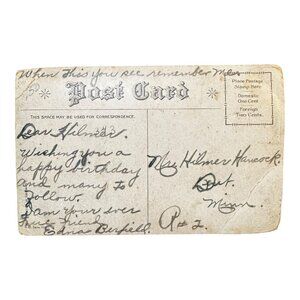 When this you see remember Me
Post Card
Place Postage
Stamp Here
Domestic
One Cent
Foreign
Two Cents.
THIS SPACE MAY BE USED FOR CORRESPONDENCE.
Dear Hilmer.
Wishing you a
happy birthday
and many to
follow.
I am your ever
true friend
Edna
Hilmer Hancock.
Minn.
R # 2.